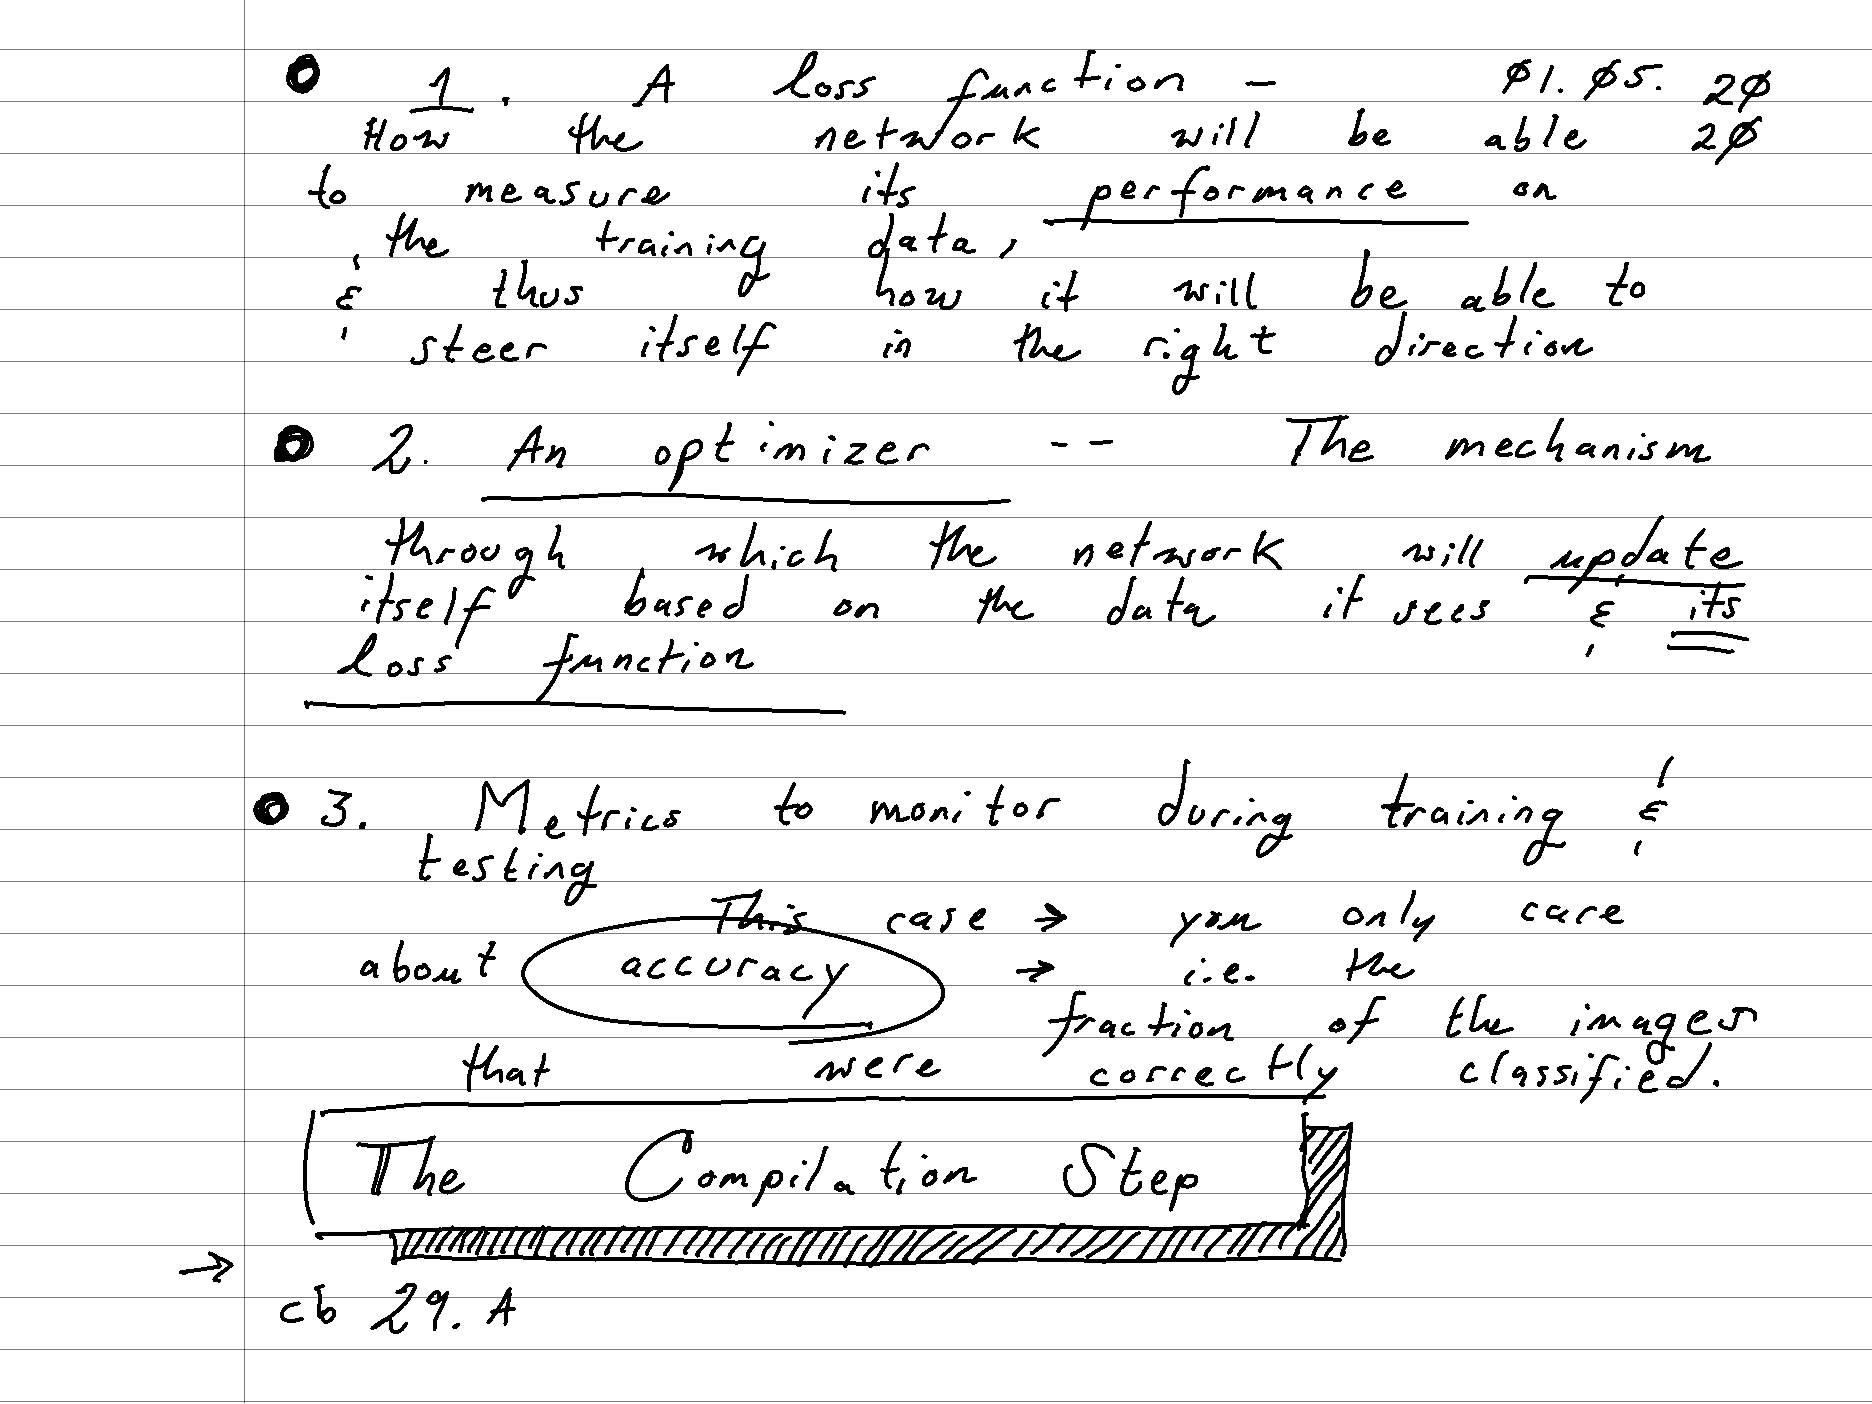 1. A loss function - Ø1. Ø5. 2Ø
How the network will be able 2Ø
to measure its performance on
the training data,
& thus how it will be able to
steer itself in the right direction
2. An optimizer -- The mechanism
through which the network will update
itself based on the data it sees & its
loss function
3. Metrics to monitor during training &
testing
This case → you only care
about accuracy → i.e. the
fraction of the images
that were correctly classified.
The Compilation Step
→
cb 29. A